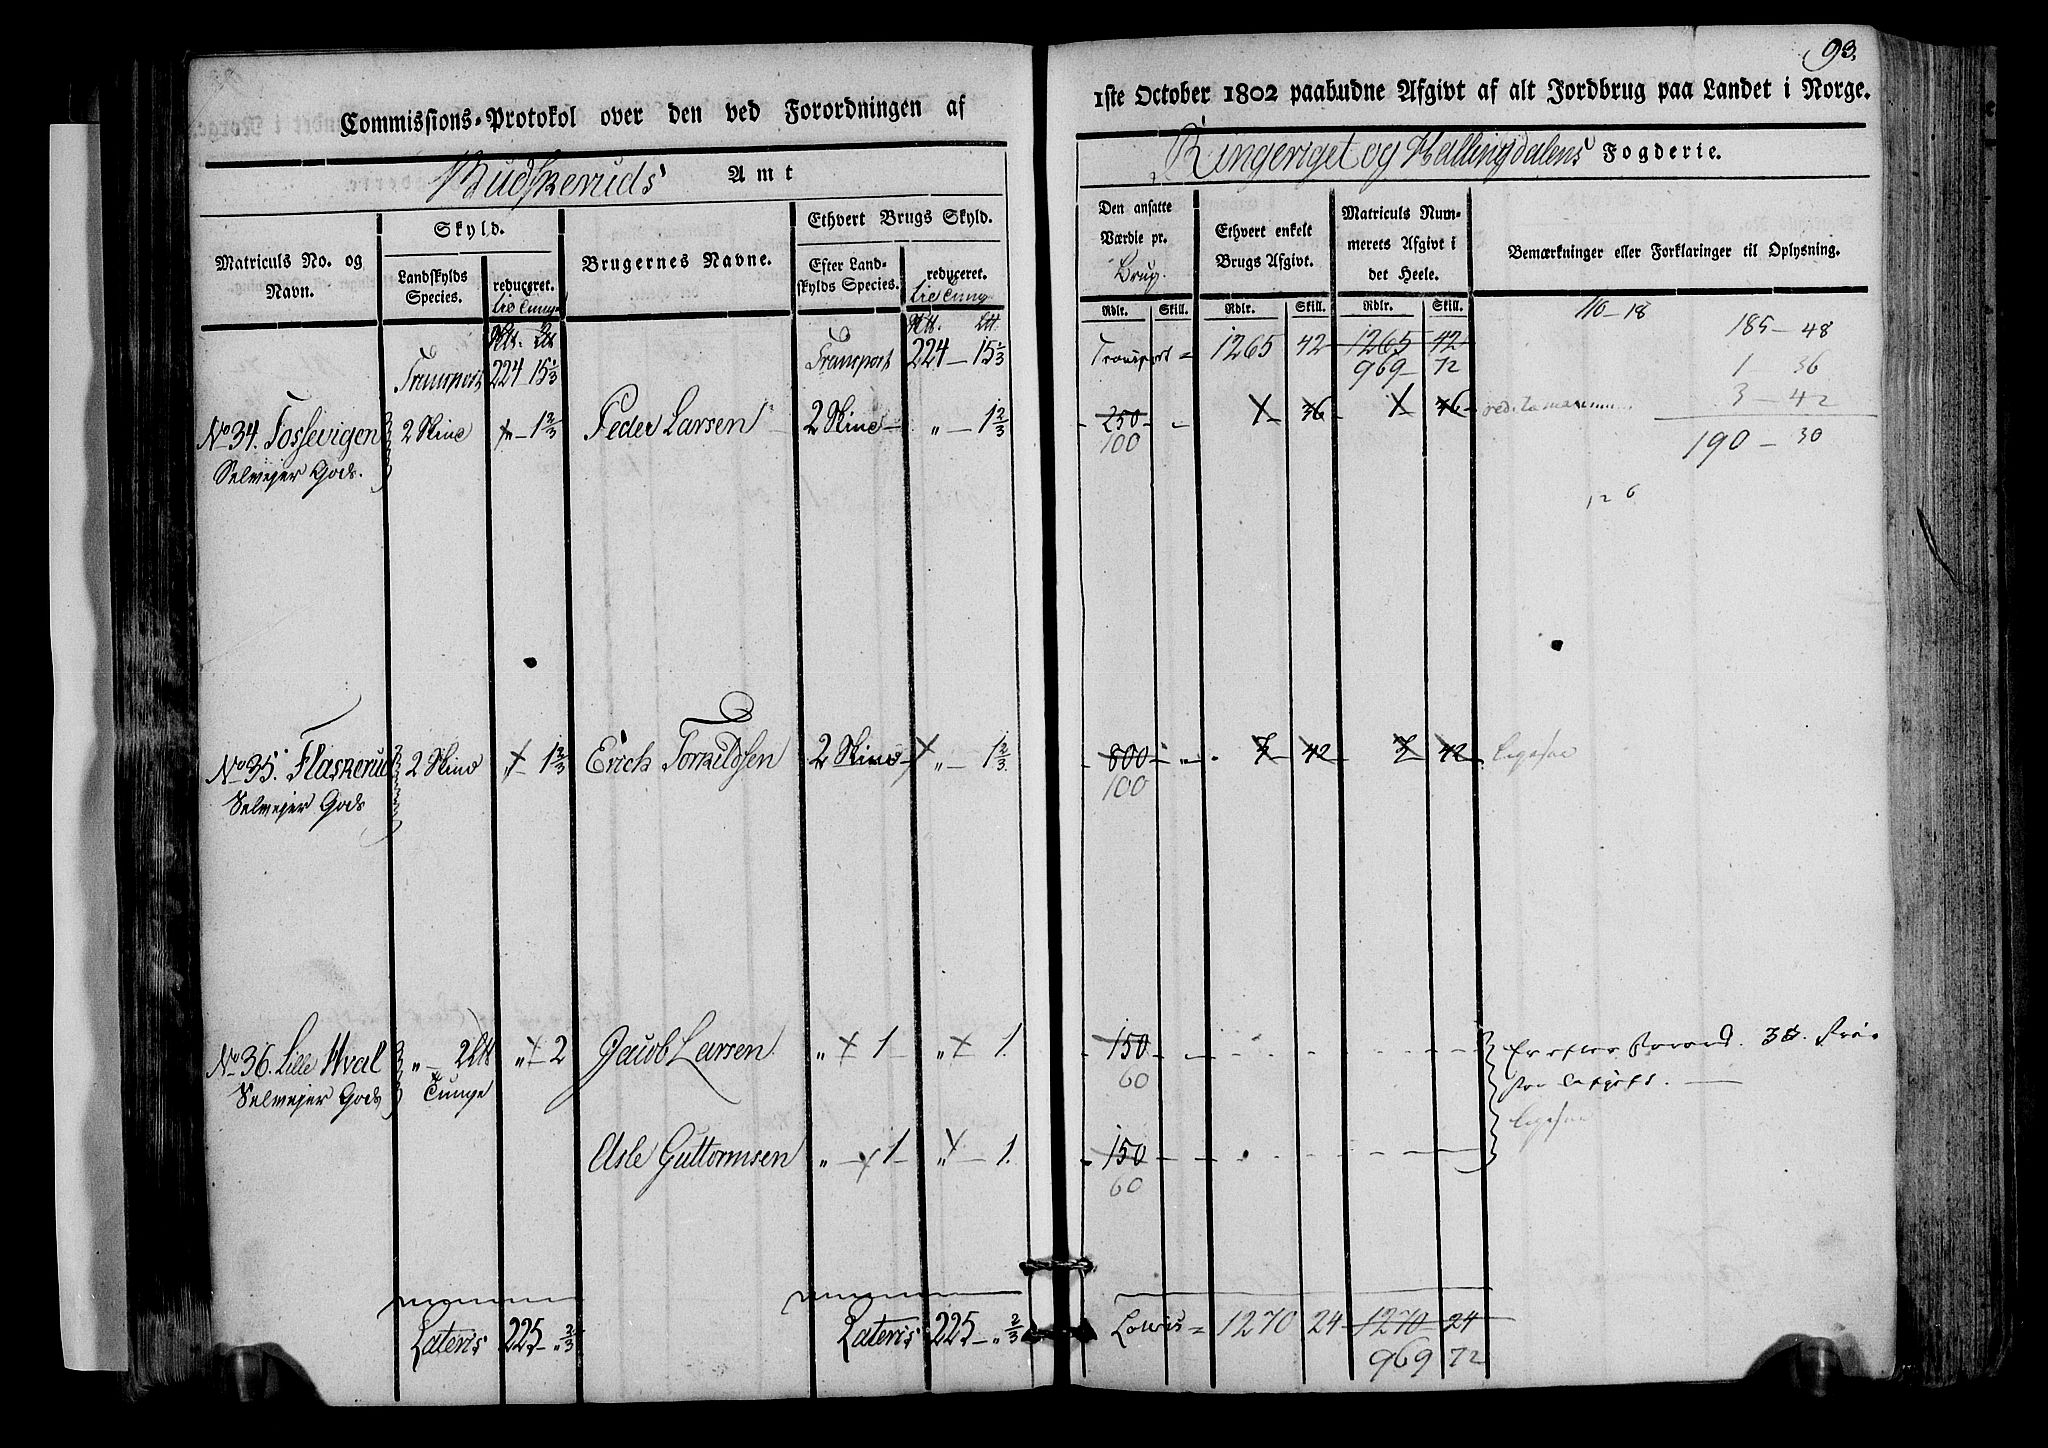 93.
Commissions-Protokol over den ved Forordningen af
1ste October 1802 paabudne Afgivt af alt Jordbrug paa Landet i Norge.
Budskeruds Amt
Ringeriget og Hallingdalens Fogderie.
Matriculs No. og Navn.
Skyld.
Landskylds Species.
reduceret.
Brugernes Navne.
Ethvert Brugs Skyld.
Efter Landskylds Species.
reduceret.
Den ansatte Værdie pr. Brug.
Ethvert enkelt Brugs Afgivt.
Matriculs Nummerets Afgivt i det Heele.
Bemærkninger eller Forklaringer til Oplysning.
Rdlr. Skill. Rdlr. Skill. Rdlr. Skill.
Transport 224 15 1/3 Transport 224 — 15 1/3 Transport = 1265 42 1265 42
969 — 72
110 — 18
185 — 48
1 — 36
3 — 42
190 — 30
No 34. Fossevigen 2 Skind — 1 2/3 Peder Larsen 2 Skind — „ — 1 2/3 250 1 36 1 36
Selvejer Gods. 100
12 6
No 35. Flaskerud 2 Skind „ — 1 2/3 Erich Torkildsen 2 Skind „ — 1 2/3 800 3 42 3 42 Ligesaa
Selvejer Gods 100
No 36. Lille Hval „ — 2 Tunge „ 2 Jacob Larsen „ 1 „ 1. 150 Er efter Forord. 3 §. Frie
Selvejer Gods 60
Ligesaa
Asle Guttormsen „ — 1 „ — 1. 150
60
Lateris 225 — „ 2/3 Lateris 225 — „ 2/3 Lateris = 1270 24 1270 24
969 72